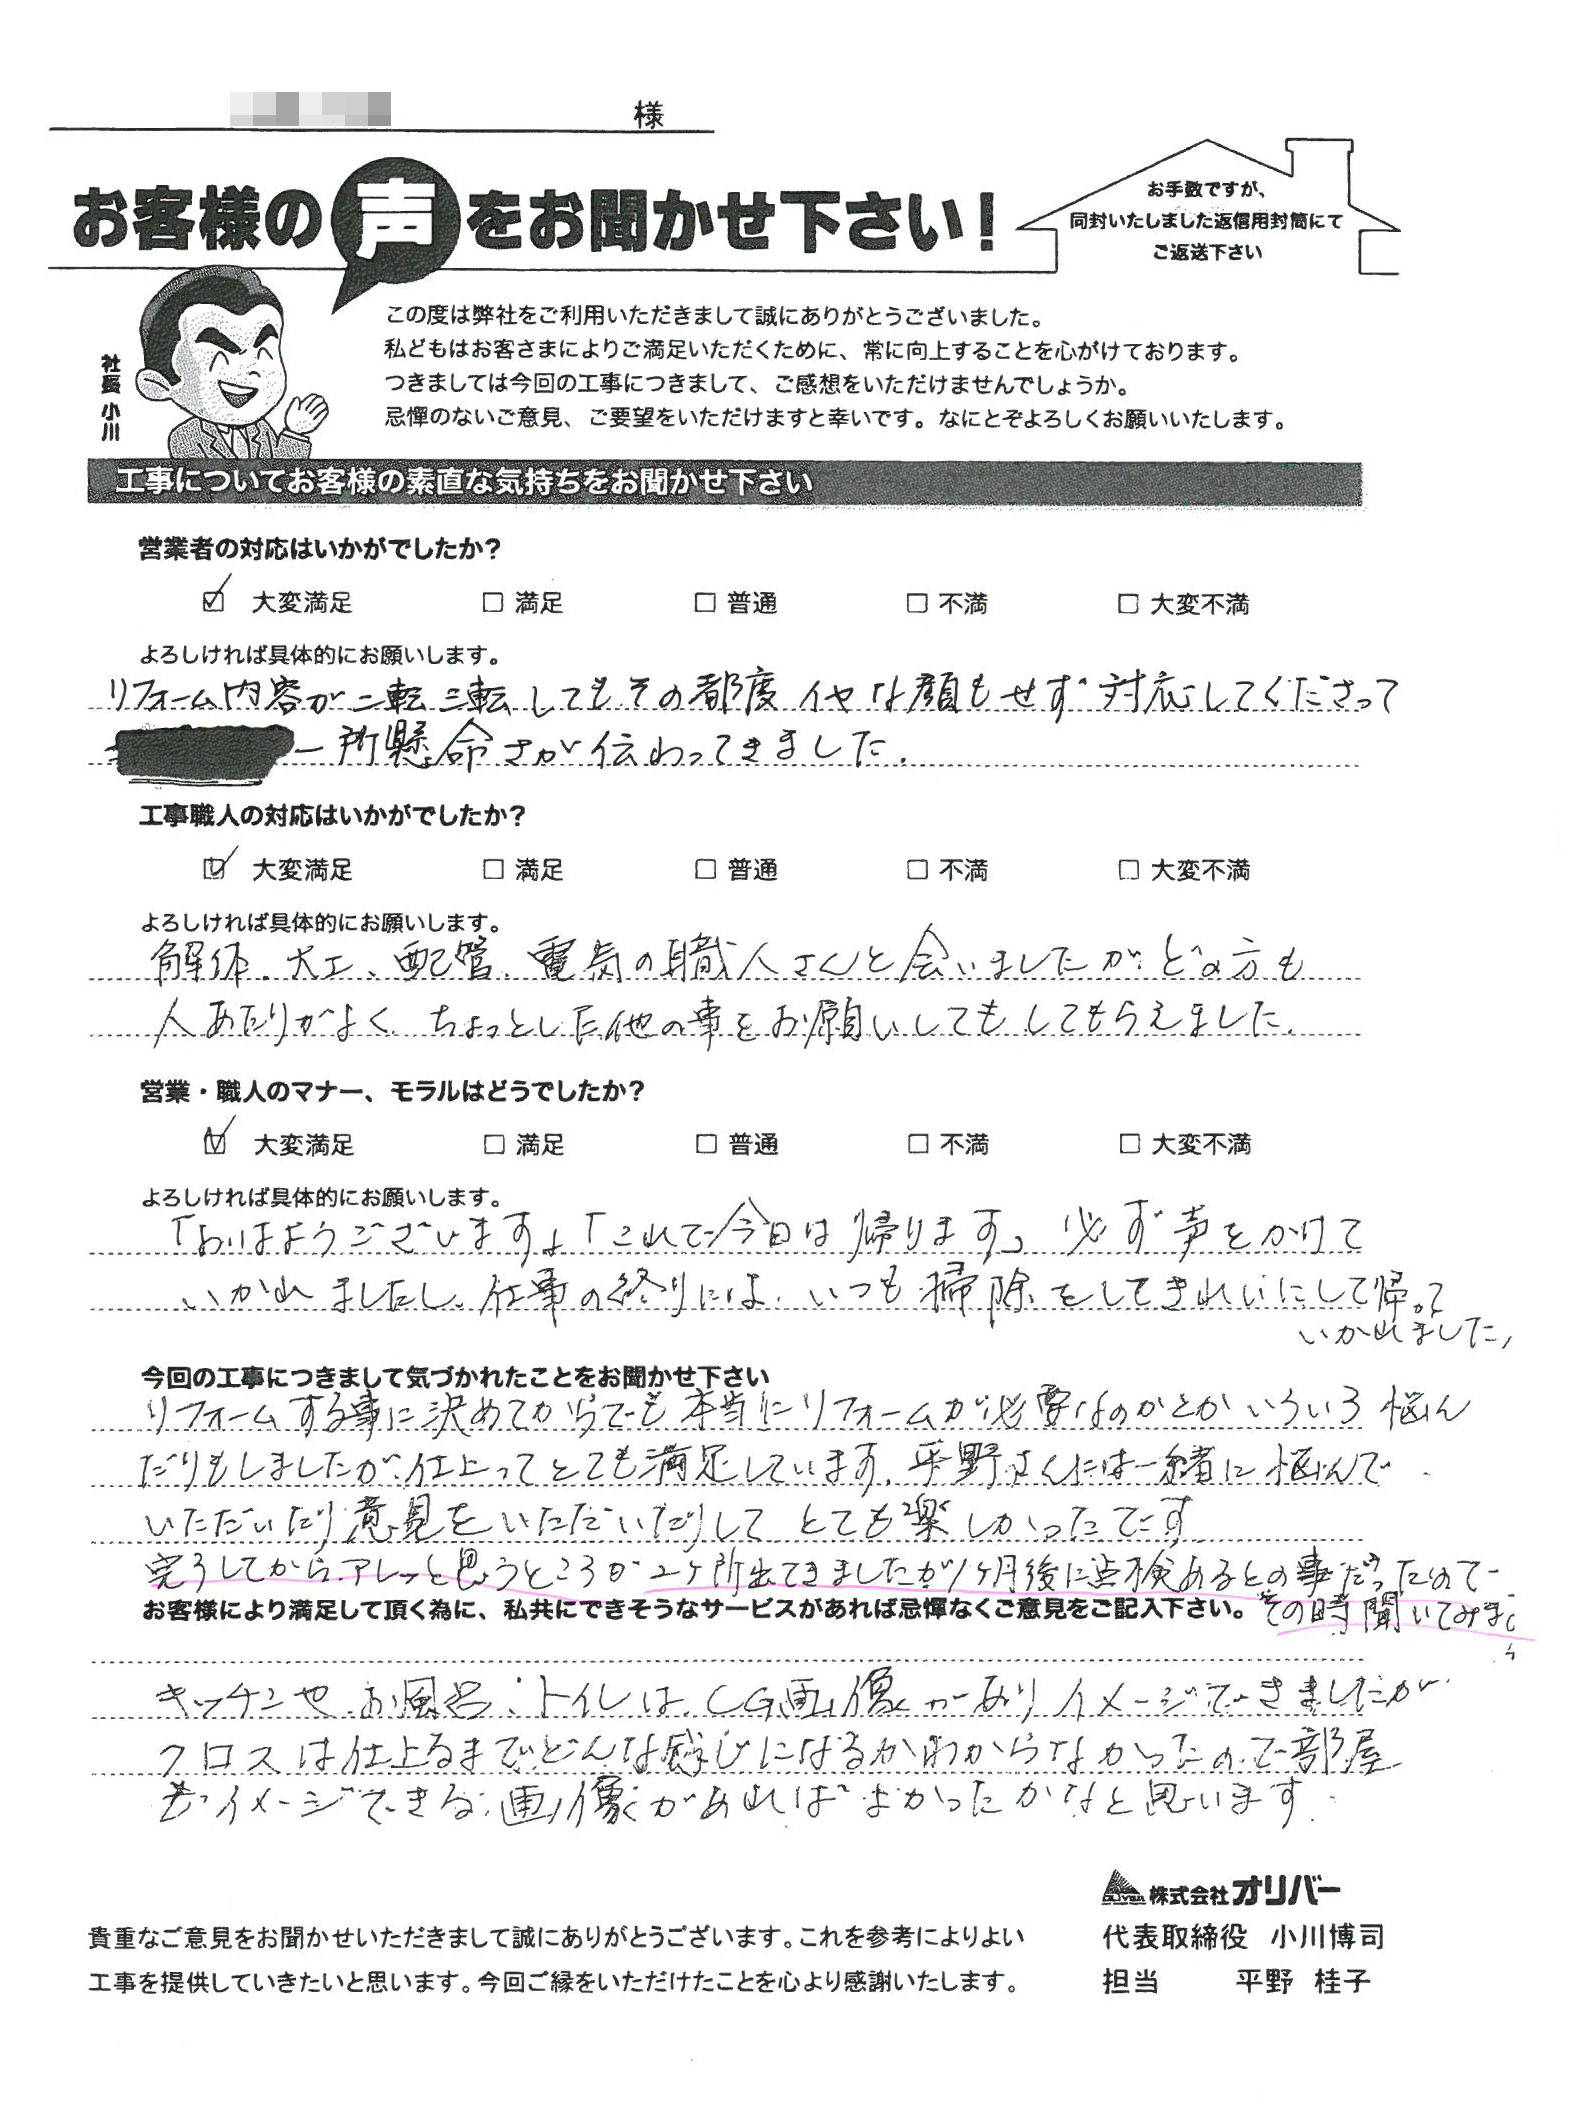 様
お客様の声をお聞かせ下さい！
お手数ですが、
同封いたしました返信用封筒にて
ご返送下さい
社長 小川
この度は弊社をご利用いただきまして誠にありがとうございました。
私どもはお客さまによりご満足いただくために、常に向上することを心がけております。
つきましては今回の工事につきまして、ご感想をいただけませんでしょうか。
忌憚のないご意見、ご要望をいただけますと幸いです。なにとぞよろしくお願いいたします。
工事についてお客様の素直な気持ちをお聞かせ下さい
営業者の対応はいかがでしたか？
☑ 大変満足 □ 満足 □ 普通 □ 不満 □ 大変不満
よろしければ具体的にお願いします。
リフォーム内容が二転三転してもその都度イヤな顔もせず対応してくださって
一所懸命さが伝わってきました.
工事職人の対応はいかがでしたか？
☑ 大変満足 □ 満足 □ 普通 □ 不満 □ 大変不満
よろしければ具体的にお願いします。
解体、大工、配管、電気の職人さんと会いましたが、どの方も
人あたりがよく、ちょっとした他の事をお願いしてもしてもらえました.
営業・職人のマナー、モラルはどうでしたか？
☑ 大変満足 □ 満足 □ 普通 □ 不満 □ 大変不満
よろしければ具体的にお願いします。
「おはようございます」「これで今日は帰ります」必ず声をかけて
いかれましたし、仕事の終りには、いつも掃除をしてきれいにして帰って
いかれました,
今回の工事につきまして気づかれたことをお聞かせ下さい
リフォームする事に決めてからでも本当にリフォームが必要なのかとかいろいろ悩ん
だりもしましたが、仕上ってとても満足しています. 平野さんには一緒に悩んで
いただいたり意見をいただいたりしてとても楽しかったです
完了してからアレッと思うところが2ヶ所出てきましたが1ヶ月後に点検あるとの事だったので
お客様により満足して頂く為に、私共にできそうなサービスがあれば忌憚なくご意見をご記入下さい。
その時聞いてみます
キッチンやお風呂、トイレは、CG画像がありイメージできましたが
クロスは仕上るまでどんな感じになるかわからなかったので部屋
もイメージできる画像があればよかったかなと思います.
株式会社オリバー
貴重なご意見をお聞かせいただきまして誠にありがとうございます。これを参考によりよい
工事を提供していきたいと思います。今回ご縁をいただけたことを心より感謝いたします。
代表取締役 小川博司
担当 平野 桂子